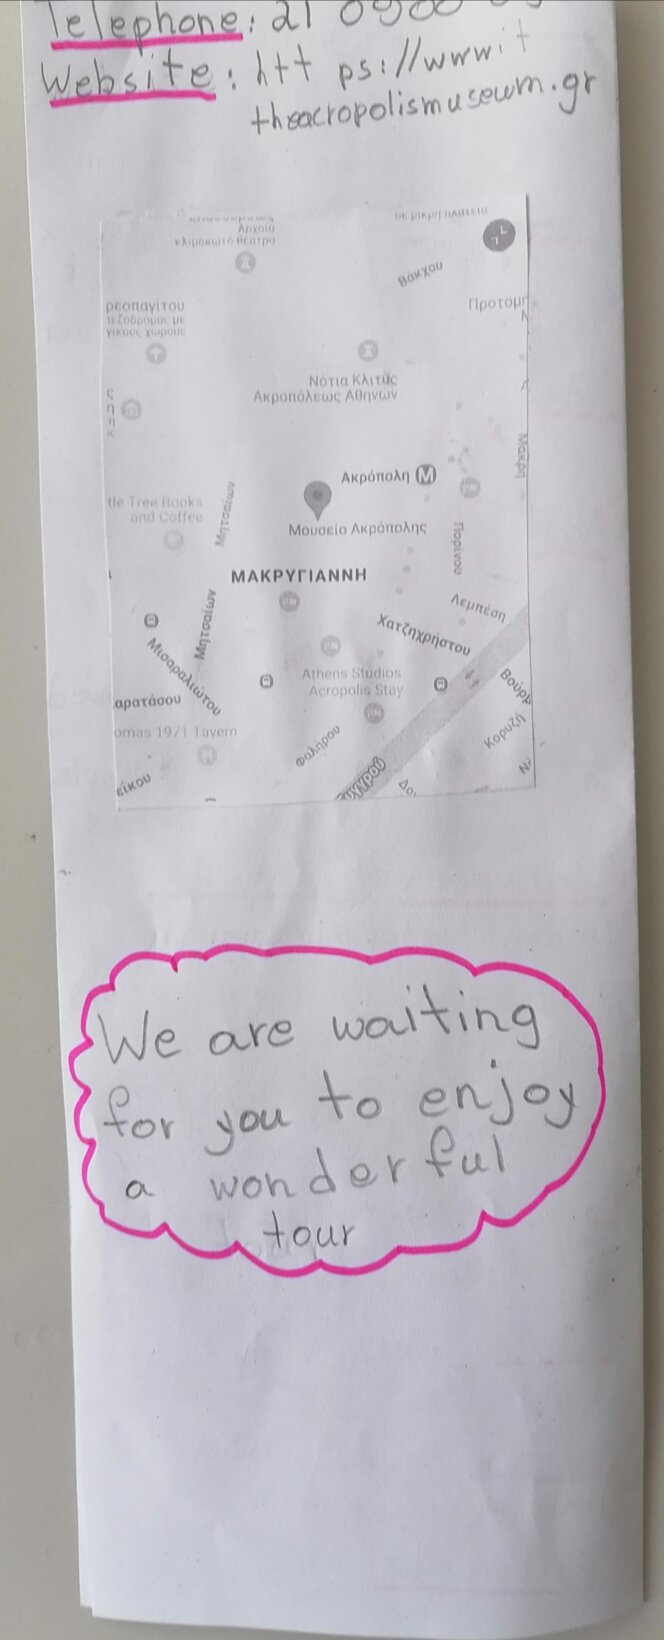 Telephone: 21
Website: htt ps://www.it
theacropolismuseum.gr
Αρχαίο
κλιμακωτό θέατρο
Βάκχου
ρεοπαγίτου
πεζόδρομος με
γικούς χώρους
Προτομ
Νότια Κλιτύς
Ακροπόλεως Αθηνών
Μακρή
Ακρόπολη M
tle Tree Books
and Coffee
Μητσαίων
Μουσείο Ακρόπολης
Πορίνου
ΜΑΚΡΥΓΙΑΝΝΗ
Λεμπέση
Μητσαίων
Χατζηχρήστου
Μισαραλιώτου
Athens Studios
Acropolis Stay
Βούρβ
αρατάσου
omas 1971 Tavern
Φαλήρου
Κορυζή
είκου
υγγρού
We are waiting
for you to enjoy
a wonderful
tour